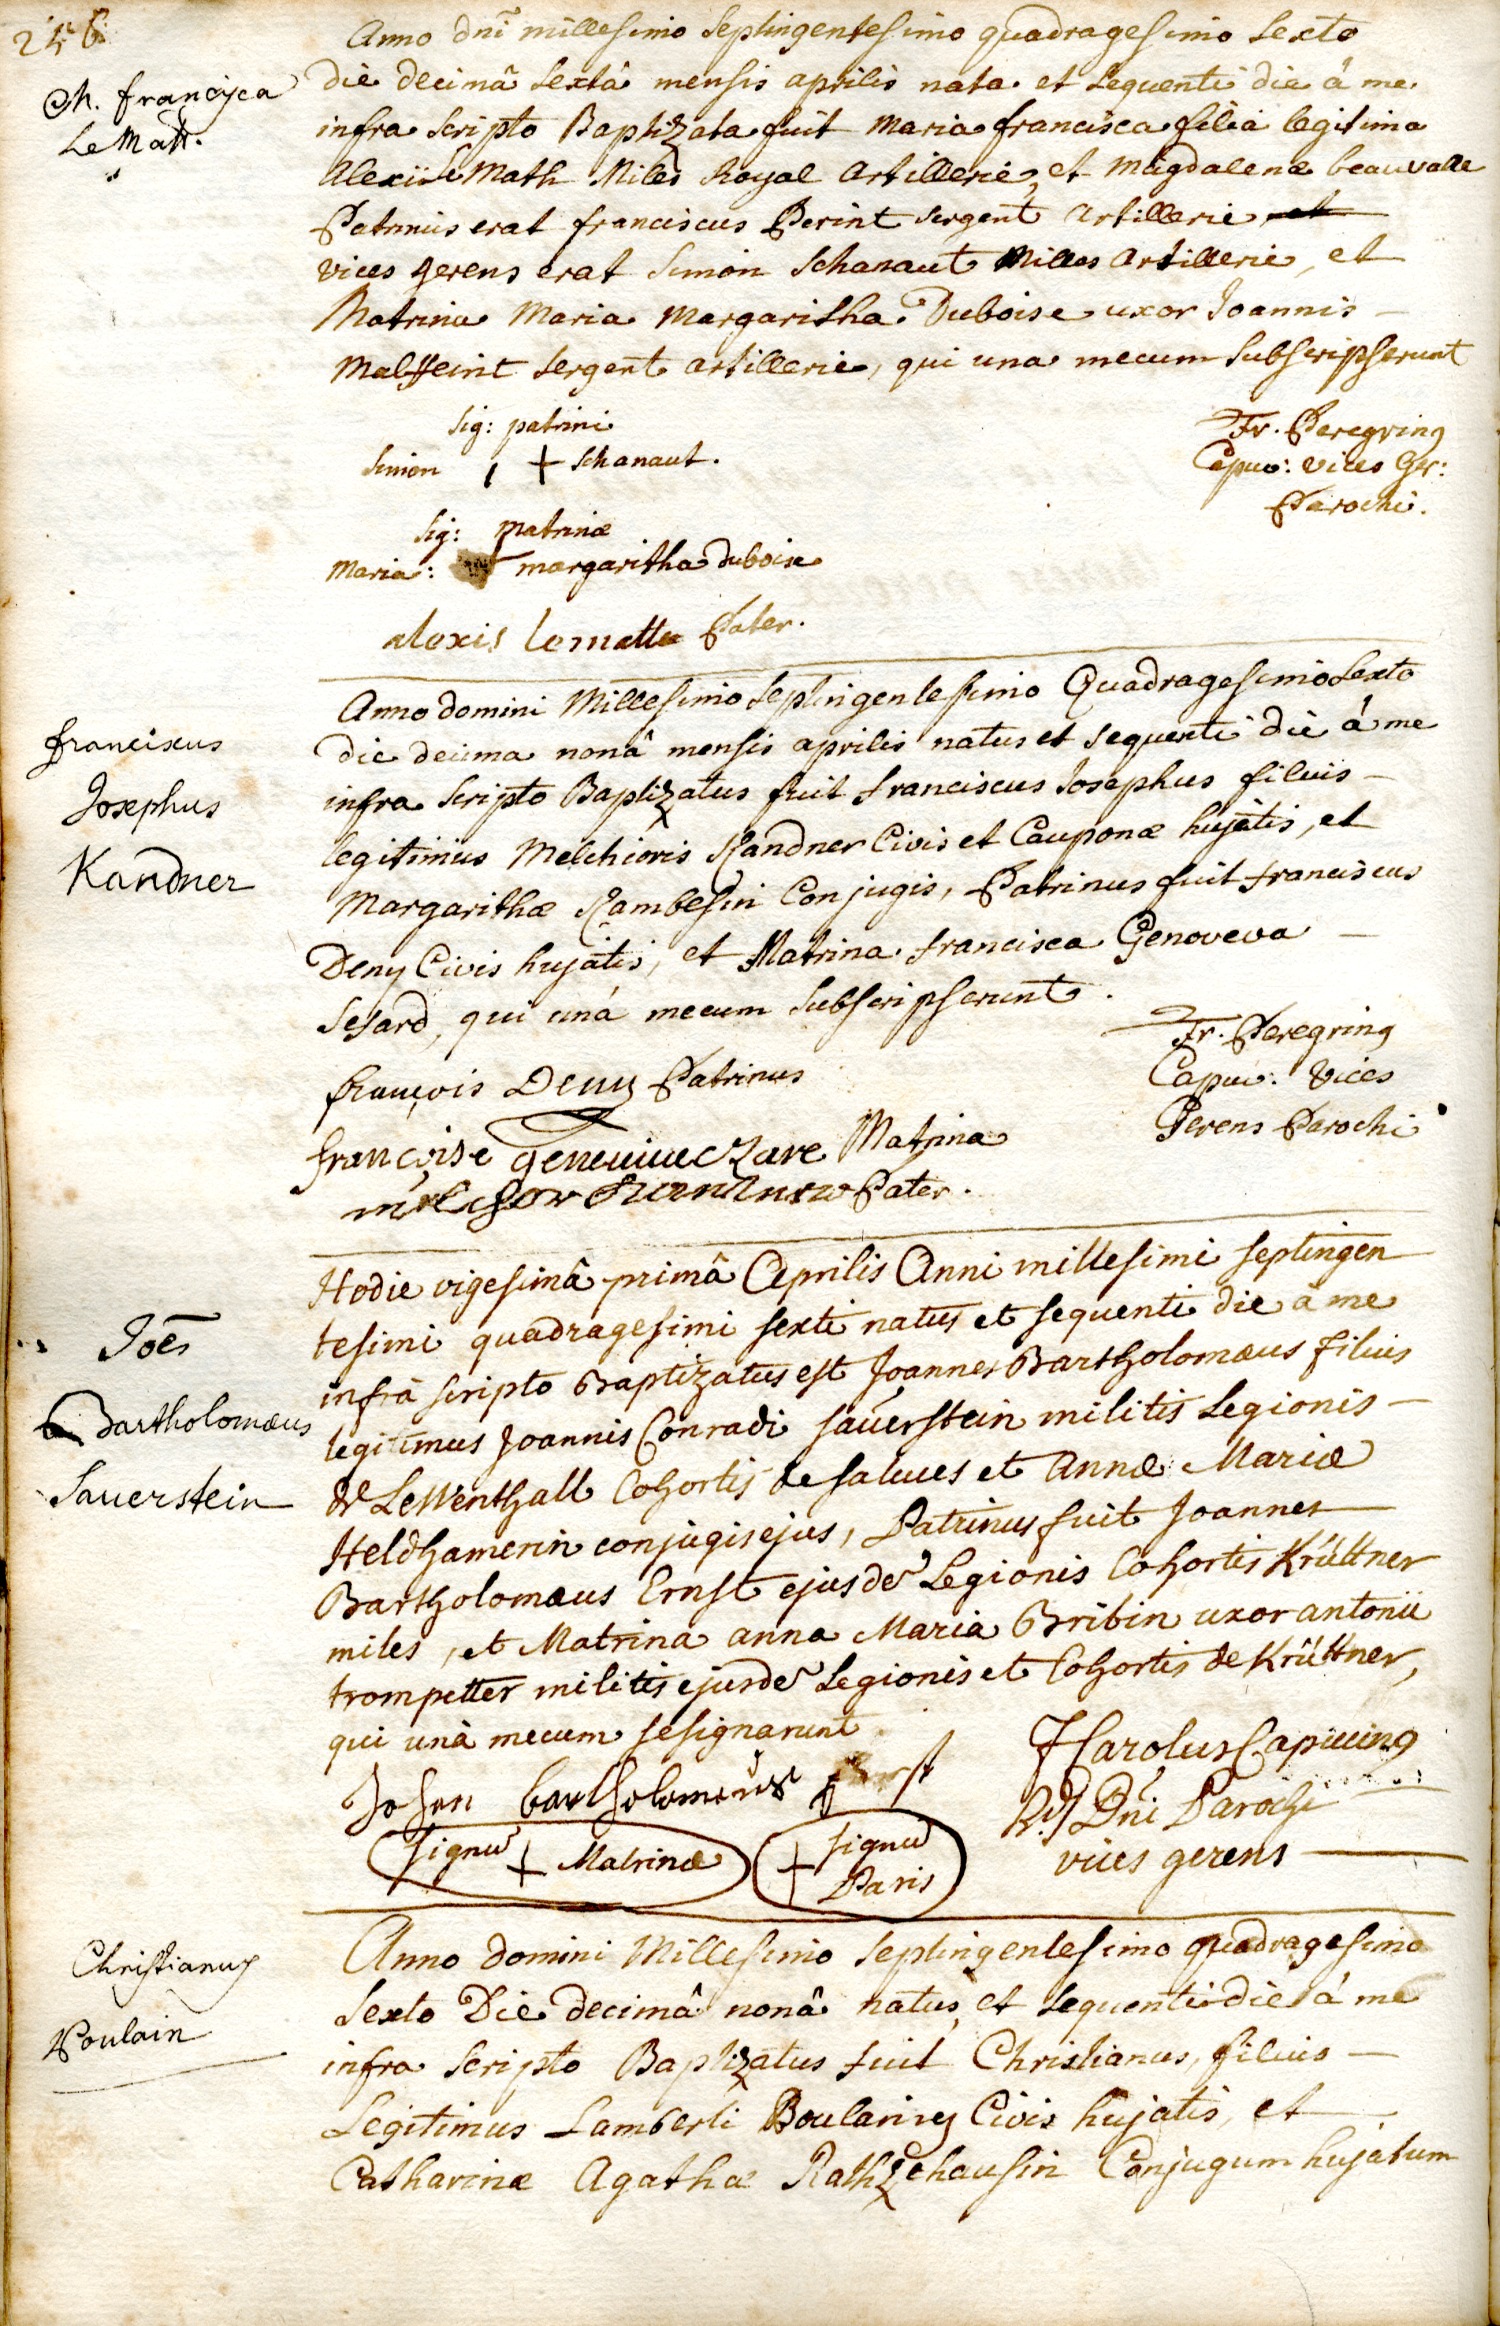 246
M. francisca
Le Matt.
Anno dni millesimo septingentesimo quadragesimo sexto
die decimâ sextâ mensis aprilis nata et sequenti die á me
infra scripto Baptizata fuit Maria francisca filia legitima
Alexii Le Math Miles Royal Artillerie, et Magdalenæ beauvalle
Patrinus erat franciscus Perint sergent Artillerie et
vices gerens erat Simon Schanaut Milles Artillerie, et
Matrina Maria Margaritha Duboise uxor Joannis
Malsseint sergent artillerie, qui una mecum subscripserunt
sig: patrini
Simon + schanaut.
sig: matrinæ
Maria: margaritha duboise
alexis lematte Pater.
Fr. Peregring
Capuc: vices Ger:
Parochi.
franciscus
Josephus
Kandner
Anno domini Millesimo septingentesimo Quadragesimo sexto
die decima nonâ mensis aprilis natus et sequenti die á me
infra scripto Baptizatus fuit franciscus Josephus filius
legitimus Melchioris Kandner Civis et Cauponæ hujatis, et
Margarithæ Kambesin Conjugis, Patrinus fuit franciscus
Deny Civis hujatis, et Matrina francisca Genoveva
Sesard, qui uná mecum subscripserunt.
françois Deny Patrinus
françoise geneviue Matrina
Pater.
Fr. Peregring
Capuc: Vices
Gerens Parochi
Joēs
Bartholomæus
Sauerstein
Hodie vigesimâ primâ Aprilis Anni millesimi septingen
tesimi quadragesimi sexti natus et sequenti die á me
infrà scripto Baptizatus est Joannes Bartholomæus filius
legitimus Joannis Conradi Sauerstein militis Legionis
de Lewenthall Cohortis de saluces et Annæ Mariæ
Heldhamerin conjugis ejus, Patrinus fuit Joannes
Bartholomæus Ernst ejusdē Legionis Cohortis Krüttner
miles, et Matrina anna Maria Bribin uxor antonii
trompetter militis ejusdē Legionis et Cohortis de Krüttner,
qui unà mecum sesignarunt
Johan bartholomeus
signū + Matrinæ
+ signū
Patris
F Carolus Capucing
Dni Parochi
vices gerens
Christianus
Poulain
Anno domini Millesimo septingentesimo quadragesimo
sexto Die decimâ nonâ natus, et sequenti die á me
infra scripto Baptizatus fuit Christianus, filius
Legitimus Lamberti Boulaniy Civis hujatis, et
Catharinæ Agathæ Rathzehausin Conjugum hujatum